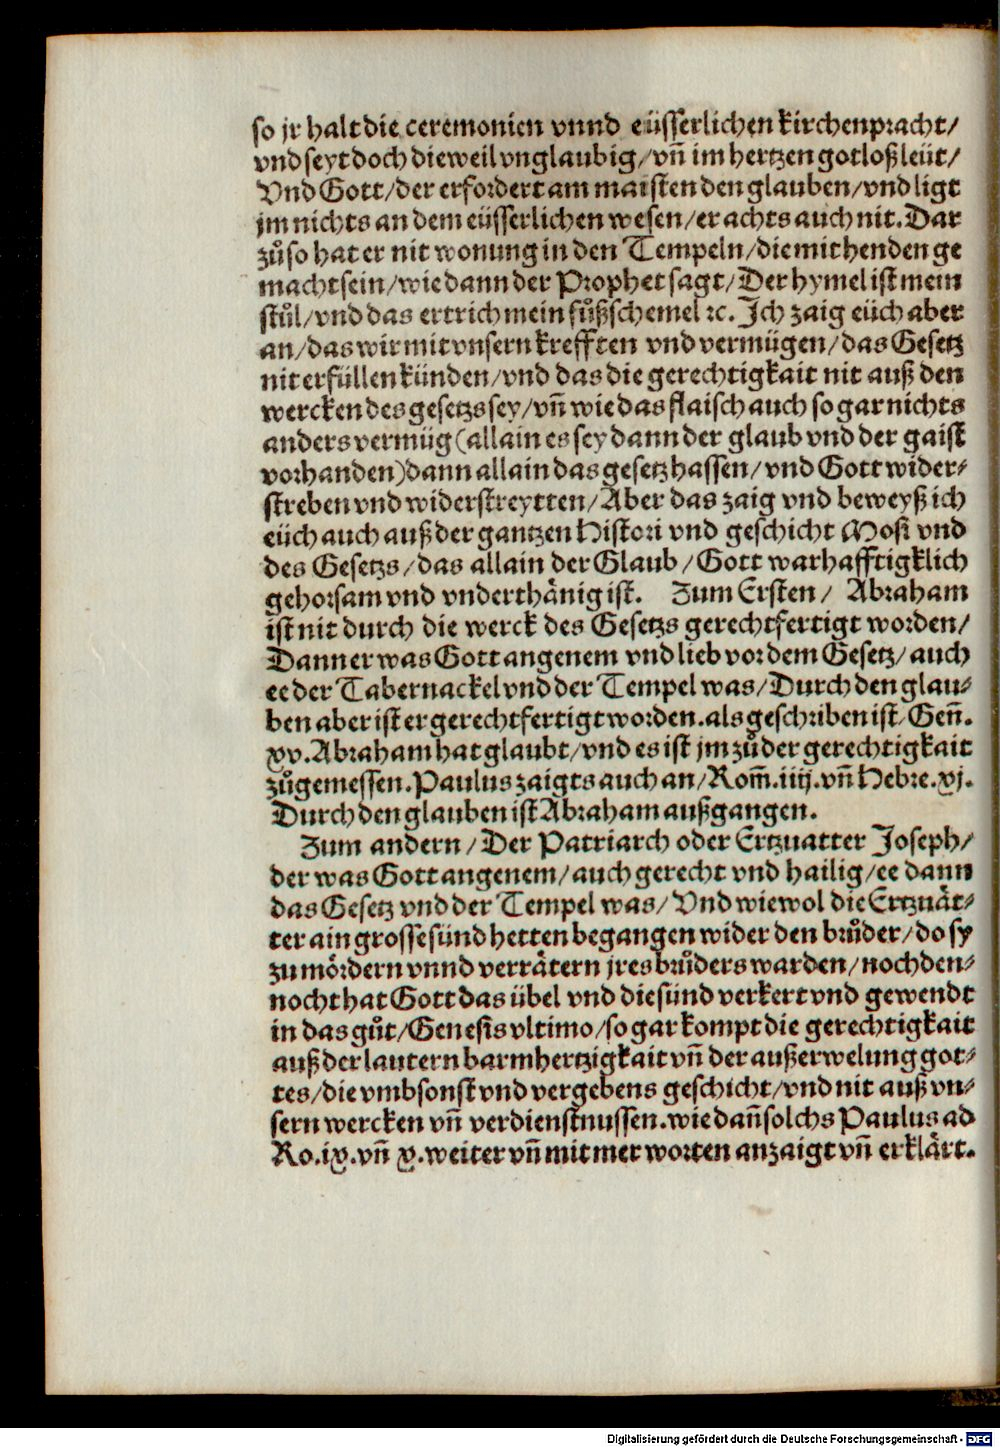 so jr halt die ceremonien vnnd eüsserlichen kirchenpracht/
vnd seyt doch dieweil vnglaubig/vñ im hertzen gotloß leüt/
Vnd Gott/der erfordert am maisten den glauben/vnd ligt
jm nichts an dem eüsserlichen wesen/er achts auch nit. Dar
zůso hat er nit wonung in den Tempeln/die mit henden ge
macht sein/wie dann der Prophet sagt/Der hymel ist mein
stůl/vnd das ertrich mein fůßschemel ꝛc. Ich zaig eüch aber
an/das wir mit vnsern krefften vnd vermügen/das Gesetz
nit erfüllen künden/vnd das die gerechtigkait nit auß den
wercken des gesetzs sey/vñ wie das flaisch auch so gar nichts
anders vermüg(allain es sey dann der glaub vnd der gaist
vorhanden)dann allain das gesetz hassen/vnd Gott wider⸗
streben vnd widerstreytten/Aber das zaig vnd beweyß ich
eüch auch auß der gantzen Histori vnd geschicht Mosi vnd
des Gesetzs/das allain der Glaub/Gott warhafftigklich
gehorsam vnd vnderthänig ist. Zum Ersten/ Abraham
ist nit durch die werck des Gesetzs gerechtfertigt worden/
Dann er was Gott angenem vnd lieb vor dem Gesetz/auch
ee der Tabernackel vnd der Tempel was/Durch den glau⸗
ben aber ist er gerechtfertigt worden.als geschriben ist/Geñ.
xv.Abraham hat glaubt/vnd es ist jm zů der gerechtigkait
zůgemessen.Paulus zaigts auch an/Rom̃.iiij.vñ Hebre.xj.
Durch den glauben ist Abraham außgangen.
Zum andern/Der Patriarch oder Ertzuatter Joseph/
der was Gott angenem/auch gerecht vnd hailig/ee dann
das Gesetz vnd der Tempel was/Vnd wiewol die Ertzuät⸗
ter ain grosse sünd hetten begangen wider den brůder/do sy
zu mördern vnnd verrätern jres brůders warden/nochden⸗
nocht hat Gott das übel vnd die sünd verkert vnd gewendt
in das gůt/Genesis vltimo/so gar kompt die gerechtigkait
auß der lautern barmhertzigkait vñ der außerwelung got⸗
tes/die vmbsonst vnd vergebens geschicht/vnd nit auß vn⸗
sern wercken vñ verdienstnussen.wie dañ solchs Paulus ad
Ro.ix.vñ x.weiter vñ mit mer worten anzaigt vñ erklärt.
Digitalisierung gefördert durch die Deutsche Forschungsgemeinschaft - DFG